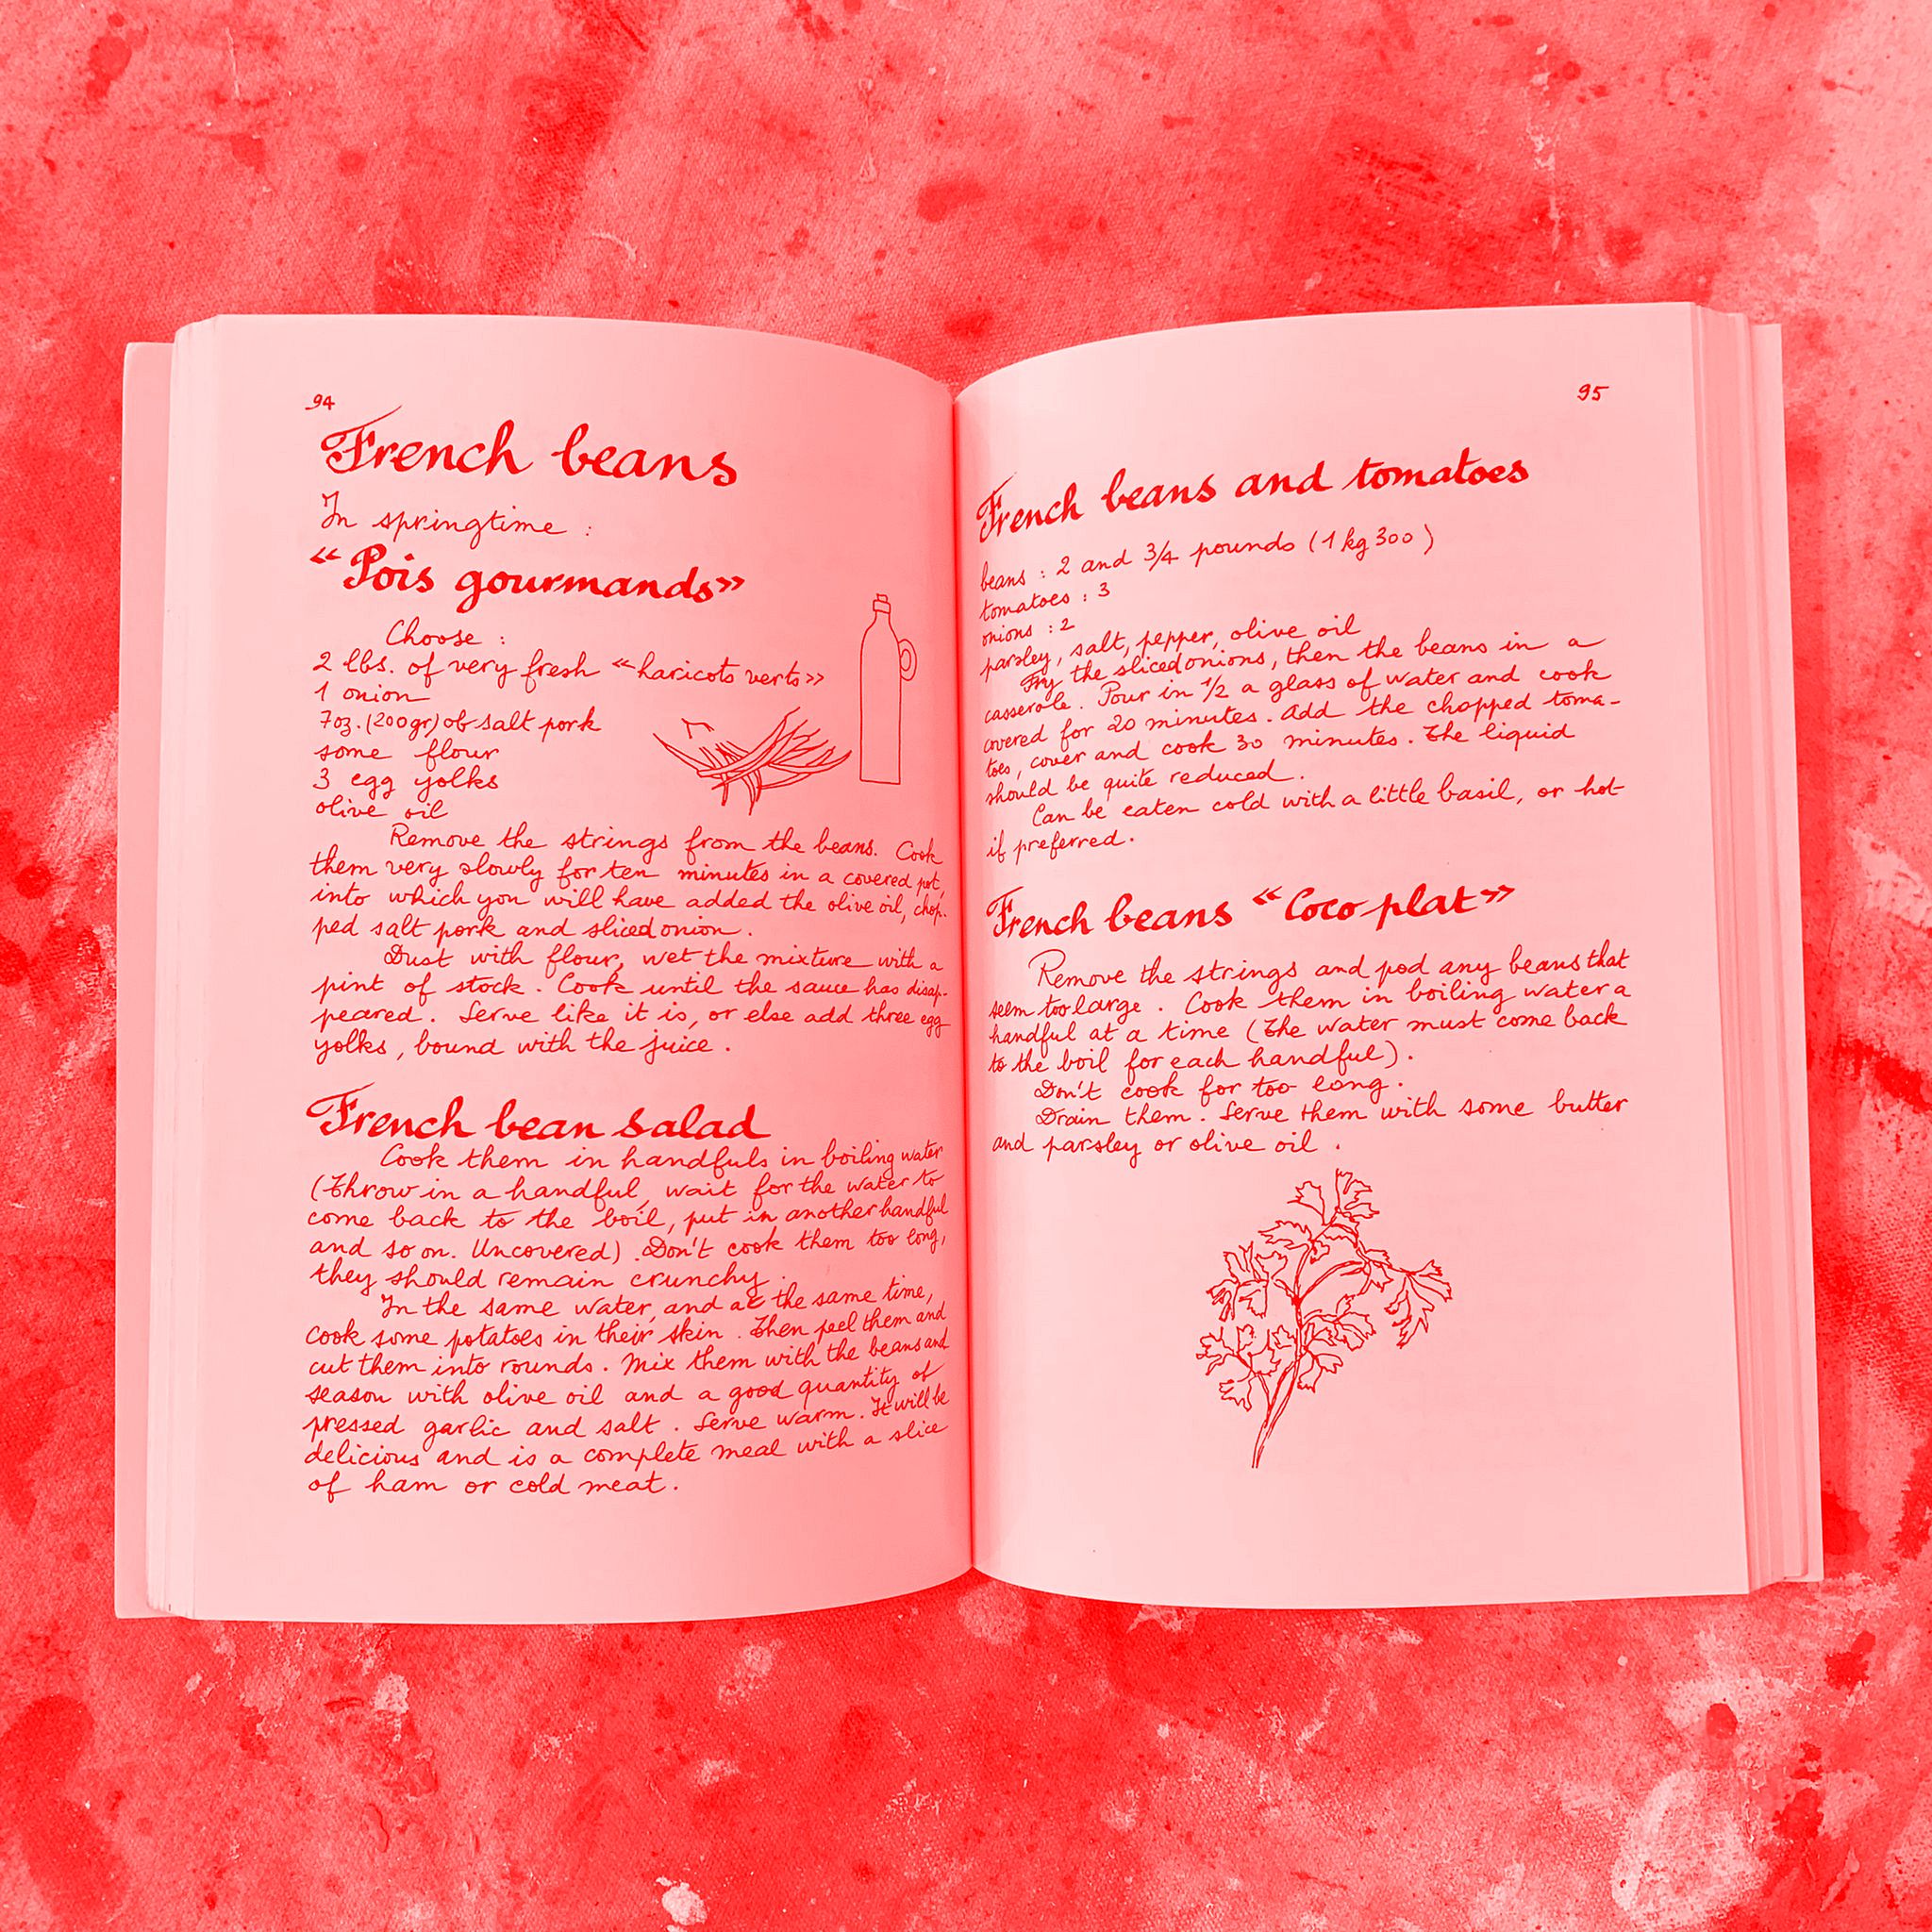 94
French beans
In springtime :
«Pois gourmands»
Choose :
2 lbs. of very fresh «haricots verts»
1 onion
7oz. (200gr) of salt pork
some flour
3 egg yolks
olive oil
Remove the strings from the beans. Cook
them very slowly for ten minutes in a covered pot,
into which you will have added the olive oil, chop-
ped salt pork and sliced onion.
Dust with flour, wet the mixture with a
pint of stock. Cook until the sauce has disap-
peared. Serve like it is, or else add three egg
yolks, bound with the juice.
French bean salad
Cook them in handfuls in boiling water
(Throw in a handful, wait for the water to
come back to the boil, put in another handful
and so on. Uncovered). Don't cook them too long,
they should remain crunchy.
In the same water, and at the same time,
cook some potatoes in their skin. Then peel them and
cut them into rounds. Mix them with the beans and
season with olive oil and a good quantity of
pressed garlic and salt. Serve warm. It will be
delicious and is a complete meal with a slice
of ham or cold meat.
95
French beans and tomatoes
beans : 2 and 3/4 pounds (1 kg 300)
tomatoes : 3
onions : 2
parsley, salt, pepper, olive oil
Fry the sliced onions, then the beans in a
casserole. Pour in 1/2 a glass of water and cook
covered for 20 minutes. Add the chopped toma-
toes, cover and cook 30 minutes. The liquid
should be quite reduced.
Can be eaten cold with a little basil, or hot
if preferred.
French beans «Coco plat»
Remove the strings and pod any beans that
seem too large. Cook them in boiling water a
handful at a time (The water must come back
to the boil for each handful).
Don't cook for too long.
Drain them. Serve them with some butter
and parsley or olive oil.